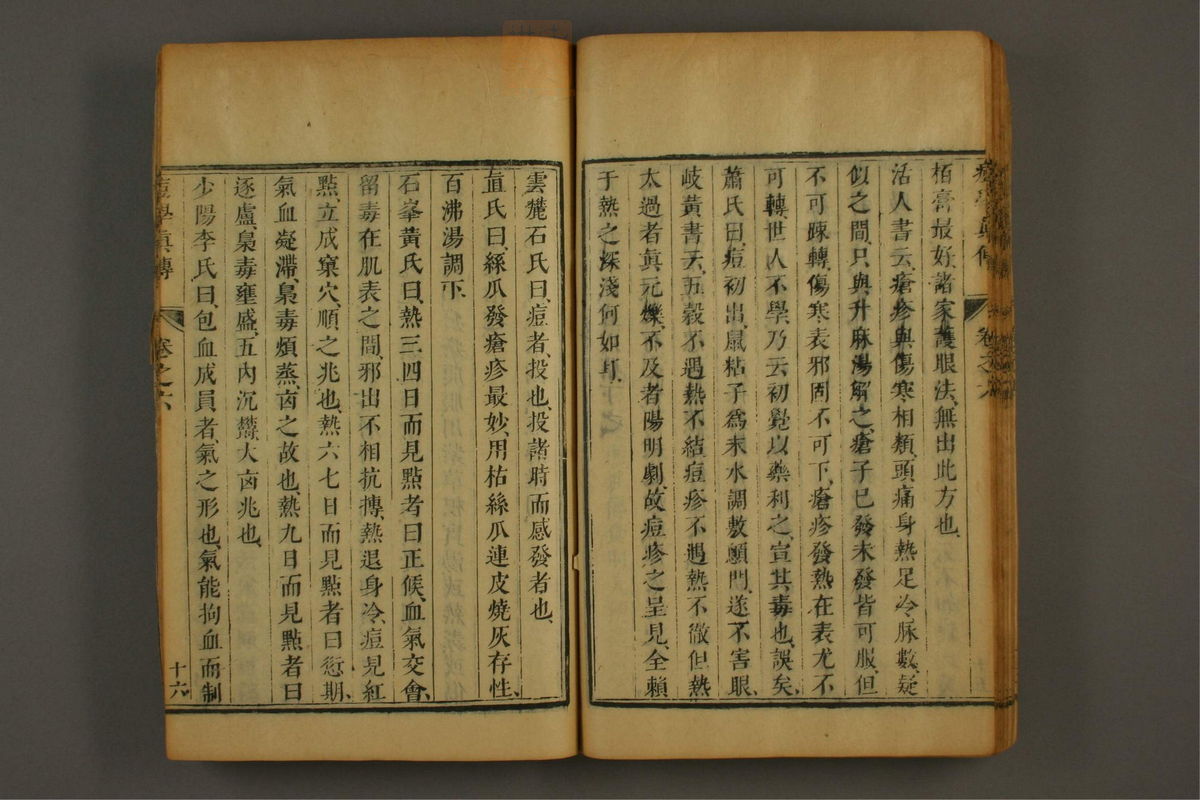 栢膏最好諸家護眼法無出此方也
活人書云瘡疹與傷寒相類頭痛身熱足冷脉數疑
似之間只與升麻湯解之瘡子已發未發皆可服但
不可疎轉傷寒表邪固不可下瘡疹發熱在表尤不
可轉世人不學乃云初覺以藥利之宣其毒也誤矣
蕭氏曰痘初出鼠粘子爲末水調敷顖門遂不害眼
岐黃書云五穀不遇熱不結痘疹不遇熱不徹但熱
太過者眞元爍不及者陽明劇故痘疹之呈見全賴
于熱之深淺何如耳
雲麓石氏曰痘者投也投諸時而感發者也
直氏曰絲瓜發瘡疹最妙用枯絲瓜連皮燒灰存性
百沸湯調下
石峯黃氏曰熱三四日而見點者曰正候血氣交會
留毒在肌表之間邪出不相抗搏熱退身冷痘見紅
點立成窠穴順之兆也熱六七日而見點者曰愆期
氣血凝滯梟毒煩蒸卤之故也熱九日而見點者曰
逐盧梟毒壅盛五內沉鬱大卤兆也
少陽李氏曰包血成員者氣之形也氣能拘血而制
痘學眞傳 卷之六 十六